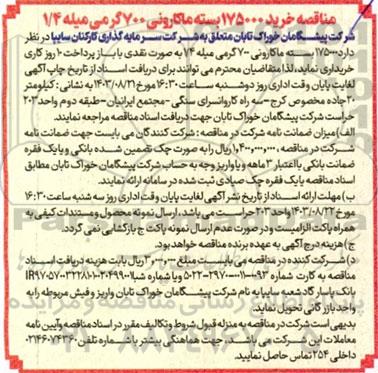 مناقصه خرید ۱۷۵۰۰۰ بسته ماکارونی ۷۰۰ گرمی میله ۱/۴
شرکت پیشگامان خوراک تابان متعلق به شرکت سرمایه گذاری کارکنان سایپا در نظر
دارد ۱۷۵۰۰۰ بسته ماکارونی ۷۰۰ گرمی میله ۷۴ به صورت نقدی با باز پرداخت ۱۰ روز کاری
خریداری نماید، لذا متقاضیان محترم می توانند برای دریافت اسناد از تاریخ چاپ آگهی
لغایت پایان وقت اداری روز دوشنبه ساعت ۱۶:۳۰ مورخ ۱۴۰۳/۰۸/۲۱ به نشانی: کیلومتر
۲۰ جاده مخصوص کرج-سه راه کاروانسرای سنگی-مجتمع ایرانیان-طبقه دوم واحد ۲۰۳
حراست شرکت پیشگامان خوراک تابان جهت دریافت اسناد مناقصه مراجعه نمایند.
الف) میزان ضمانت نامه شرکت در مناقصه: شرکت کنندگان می بایست جهت ضمانت نامه
شرکت در مناقصه، ریال را به صورت چک تضمین شده بانکی و یا یک فقره
ضمانت بانکی با اعتبار ۳ ماهه و یا واریز وجه به حساب شرکت پیشگامان خوراک تابان مطابق
اسناد مناقصه یا یک فقره چک صیادی ثبت شده در سامانه ارائه نمایند.
ب) مهلت ارائه اسناد از تاریخ نشر آگهی لغایت پایان وقت اداری روز سه شنبه ساعت ۱۶:۳۰
مورخ ۱۴۰۳/۰۸/۲۲ واحد ۲۰۳ حراست می باشد، ارسال نمونه محصول و مستندات کیفی به
همراه پاکت الزامیست و در صورت عدم ارسال نمونه پاکت ج بازگشایی نمی گردد.
ج) هزینه درج آگهی به عهده برنده مناقصه خواهد بود.
د) شرکت کننده در مناقصه می بایست مبلغ ریال بابت هزینه دریافت اسناد
مناقصه به کارت شماره ویا شماره شبا
بانک پاسارگاد شعبه سایپا به نام شرکت پیشگامان خوراک تابان واریز و فیش مربوطه را به
واحد بازرگانی تحویل نماید.
بدیهی است شرکت در مناقصه به منزله قبول شروط و تکالیف مقرر در اسناد مناقصه و آیین نامه
معاملات این شرکت می باشد، جهت هماهنگی بیشتر با شماره تلفن ۰۲۱۴۶۰۷۴۳۶۰
داخلی ۲۵۴ تماس حاصل نمایید.